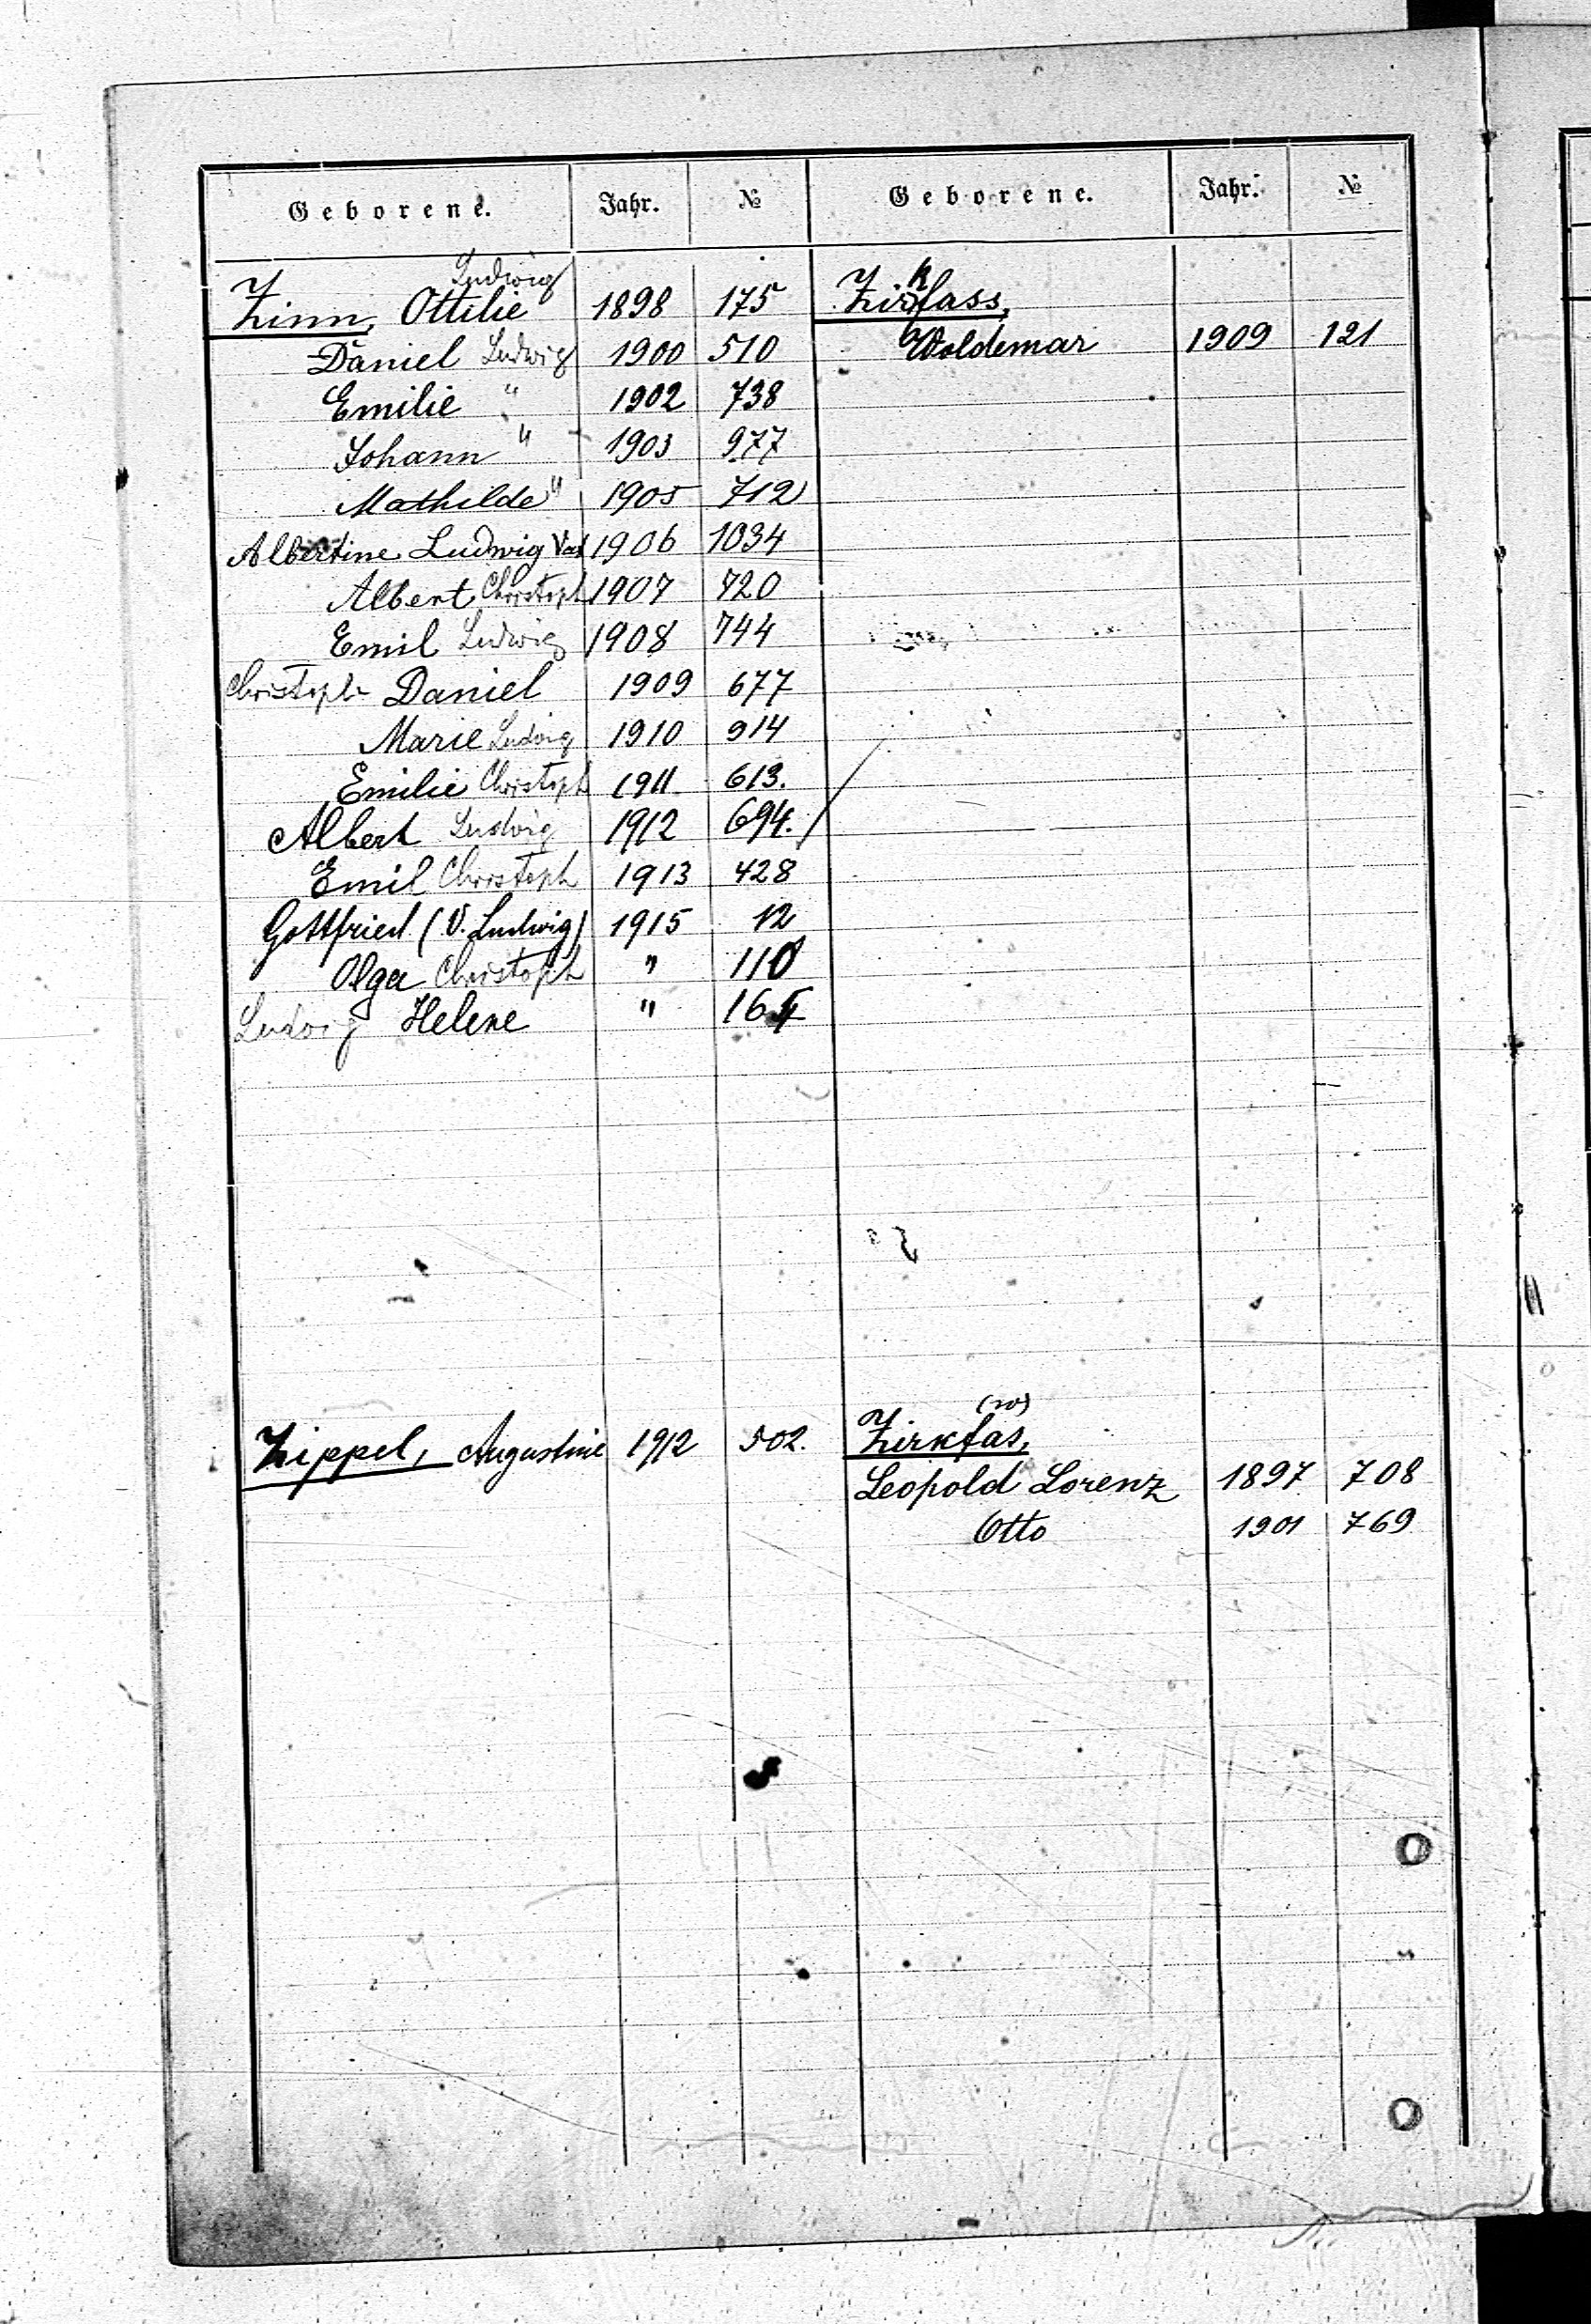 Geborene. Jahr. №
Ludwig
Zinn, Ottilie 1898 175
Daniel Ludwig 1900 510
Emilie " 1902 738
Johann " 1903 977
Mathilde " 1905 712
Albertine Ludwig Vat 1906 1034
Albert Christoph 1907 720
Emil Ludwig 1908 744
Christoph Daniel 1909 677
Marie Ludwig 1910 914
Emilie Christoph 1911 613.
Albert Ludwig 1912 694.
Emil Christoph 1913 428
Gottfried (V. Ludwig) 1915 12
Olga Christoph " 110
Ludwig Helene " 164
Zippel, Augustine 1912 502.
Geborene. Jahr. №
k
Zirkfass,
Woldemar 1909 121
Zirkfas,
Leopold Lorenz 1897 708
Otto 1901 769